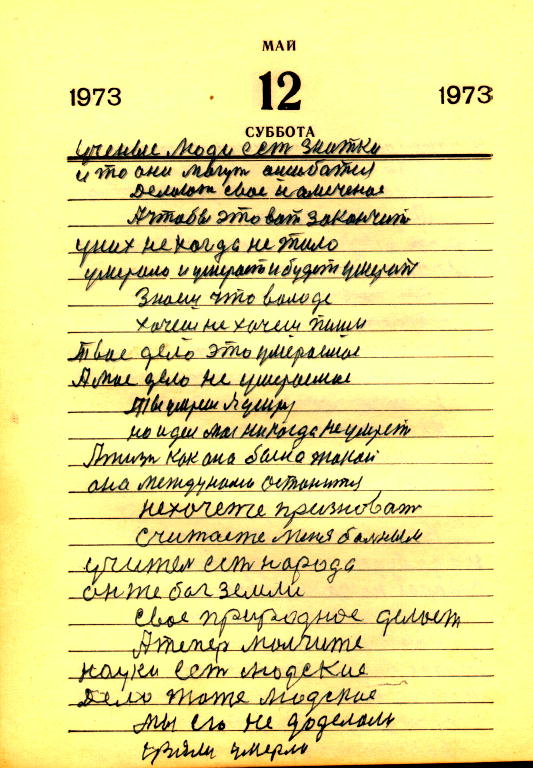 МАЙ
1973 12 1973
СУББОТА
ученые люди ест знатки
и то они могут ошибатся
Делоют свое намеченое
Ачтобы этоват закончит
уних не когда не тило
умерало и умерает и будет умерат
Знаем что володе
хочеш не хочеш пиши
твае дело это умераемае
Амае дело не умераемае
Ты умреш Я умру
но идея моя никогда не умрет
Птица как она была такой
она междунами останится
нехочете признават
считаете меня бальным
учител ест народа
онже бог земли
свое природное делоет
Атепер молчите
науки ест людские
Дело тоже людское
мы его не доделали
взяли умерли